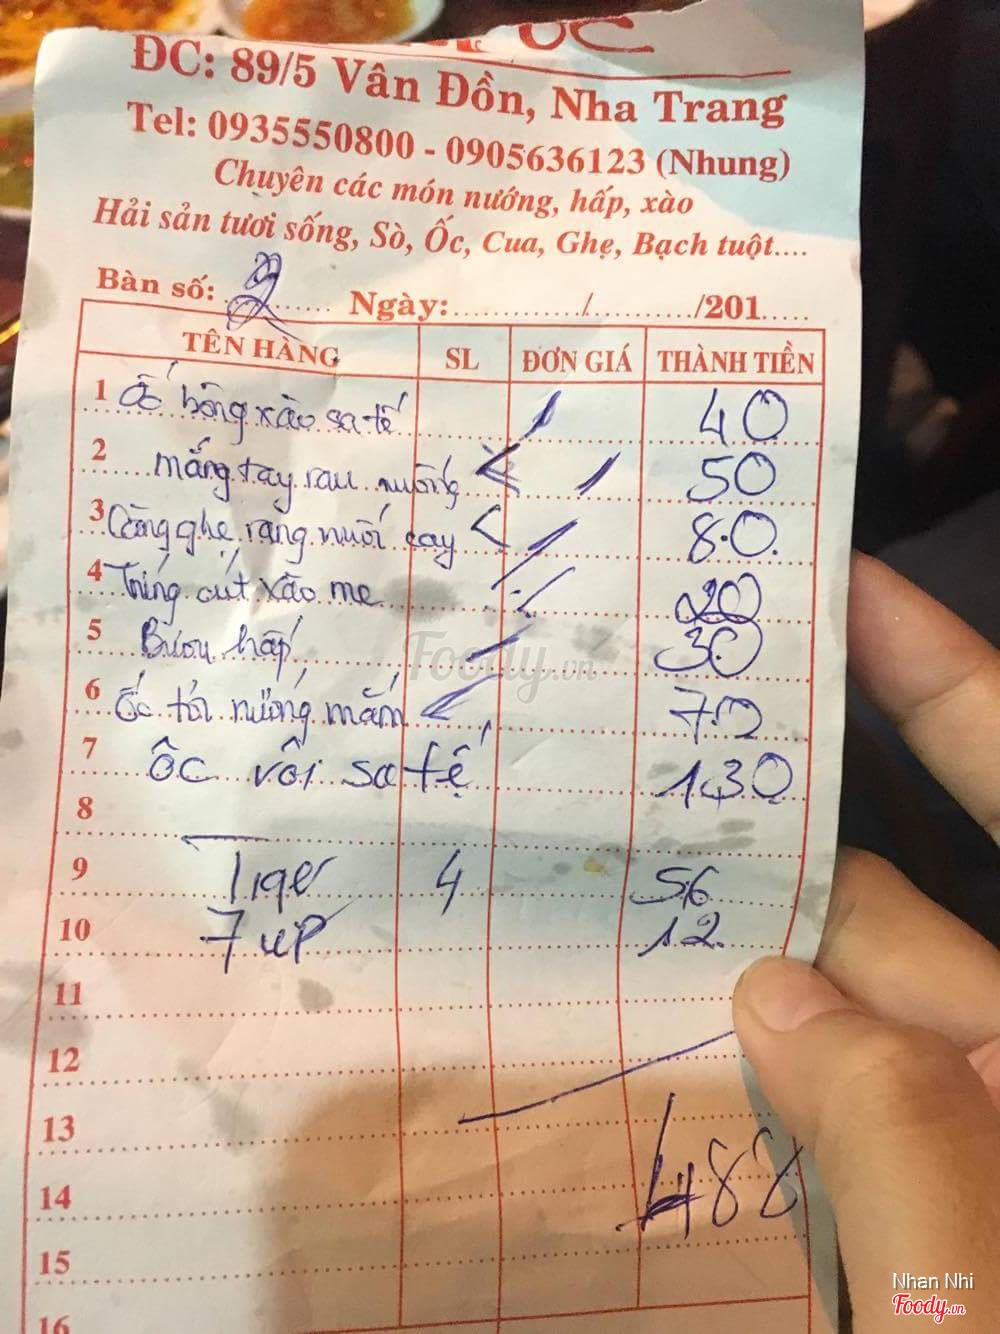 ỐC
ĐC: 89/5 Vân Đồn, Nha Trang
Tel: 0935550800 - 0905636123 (Nhung)
Chuyên các món nướng, hấp, xào
Hải sản tươi sống, Sò, Ốc, Cua, Ghẹ, Bạch tuột....
Bàn số: 2 Ngày:............/............/201.....
TÊN HÀNG SL ĐƠN GIÁ THÀNH TIỀN
1 Ốc hông xào sa tế 40
2 móng tay rau muống 50
3 Càng ghẹ rang muối cay 80
4 Trứng cút xào me 20
5 Bươu hấp 30
6 Ốc tỏi nướng mắm 70
7 ốc vôi sa tế 130
8
9 Tiger 4 56
10 7 up 12
11
12
13
14 488
15
16
Foody.vn
Nhan Nhi
Foody.vn